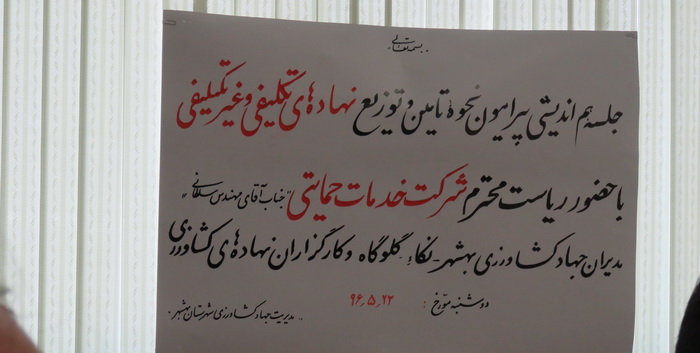 بسمه تعالی
جلسه هم اندیشی پیرامون نحوه تامین و توزیع نهاده های تکلیفی و غیر تکلیفی
با حضور ریاست محترم شرکت خدمات حمایتی "جناب آقای مهندس سلطانی"
مدیران جهاد کشاورزی بهشهر - نکاء - گلوگاه و کارگزاران نهاده های کشاورزی
دوشنبه مورخ : ۹۶٫۵٫۲۳
مدیریت جهاد کشاورزی شهرستان بهشهر